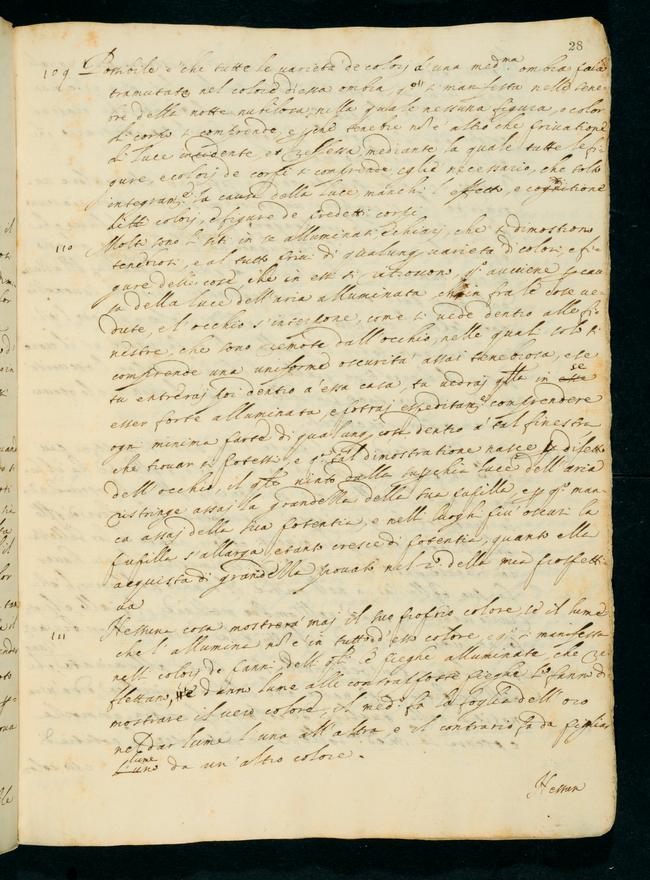 28
109 Possibile è che tutte le varietà de colorj d'una med.ma ombra
tramutate nel colore d'essa ombra, q.o si manifesta nelle tene-
bre della notte nuvilosa, nella quale nessuna figura, o color
di corpo si comprende, e p.che tenebre nō è altro che privatione
di luce incidente, et reflessa mediante la quale tutte le fi-
gure, e colorj de corpi si comprende, eglié necessario, che tolto
integram.te la causa della luce manchi l'effetto, e cognitione
de colorj, e figure de predetti corpi.
110 Molti sono li siti in se alluminati, e chiarj, che si dimostrono
tenebrosi, e al tutto privi di qualunq. varietà di colorj, e fi-
gure delle cose, che in essi si ritrovon, q.o avviene p cau-
sa della luce dell'aria alluminata, che in fra le cose ve-
dute, e l'occhio s'interpone, come si vede dentro alle fi-
nestre, che sono remote dall'occhio, nelle quali solo si
comprende una uniforme oscurità assai tenebrosa, e se
tu entreraj poi dentro a essa casa, tu vedraj q.lla in se
esser forte alluminata, e potraj espeditam.te comprendere
ogni minima parte di qualunq. cosa dentro a tal finestra
che trovar si potessi, e q.a tal dimostratione nasce p difetto
dell'occhio, il q.le vinto dalla superchia luce dell'aria
restringe assaj la grandezza della sua pupilla, e p q.o man-
ca assaj della sua potentia, e nelli luoghi più oscuri la
pupilla s'allarga, e tanto cresce di potentia, quanto ella
acquista di grandezza, provato nel 2.o della mia prospetti-
va
111 Nessuna cosa mostrerà maj il suo proprio colore, se il lume
che l'allumina nō è in tutto d'esso colore, e q.o si manifesta
nelli colorj de panni, dell q.li le pieghe alluminate, che re-
flettan, danno lume alle contrapposte pieghe li fanno di-
mostrare il vero colore, il med.o fa la foglia dell'oro
nel dar lume l'una all'altra, e il contrario fa da pigliar
lume da un'altro colore.
Nessun